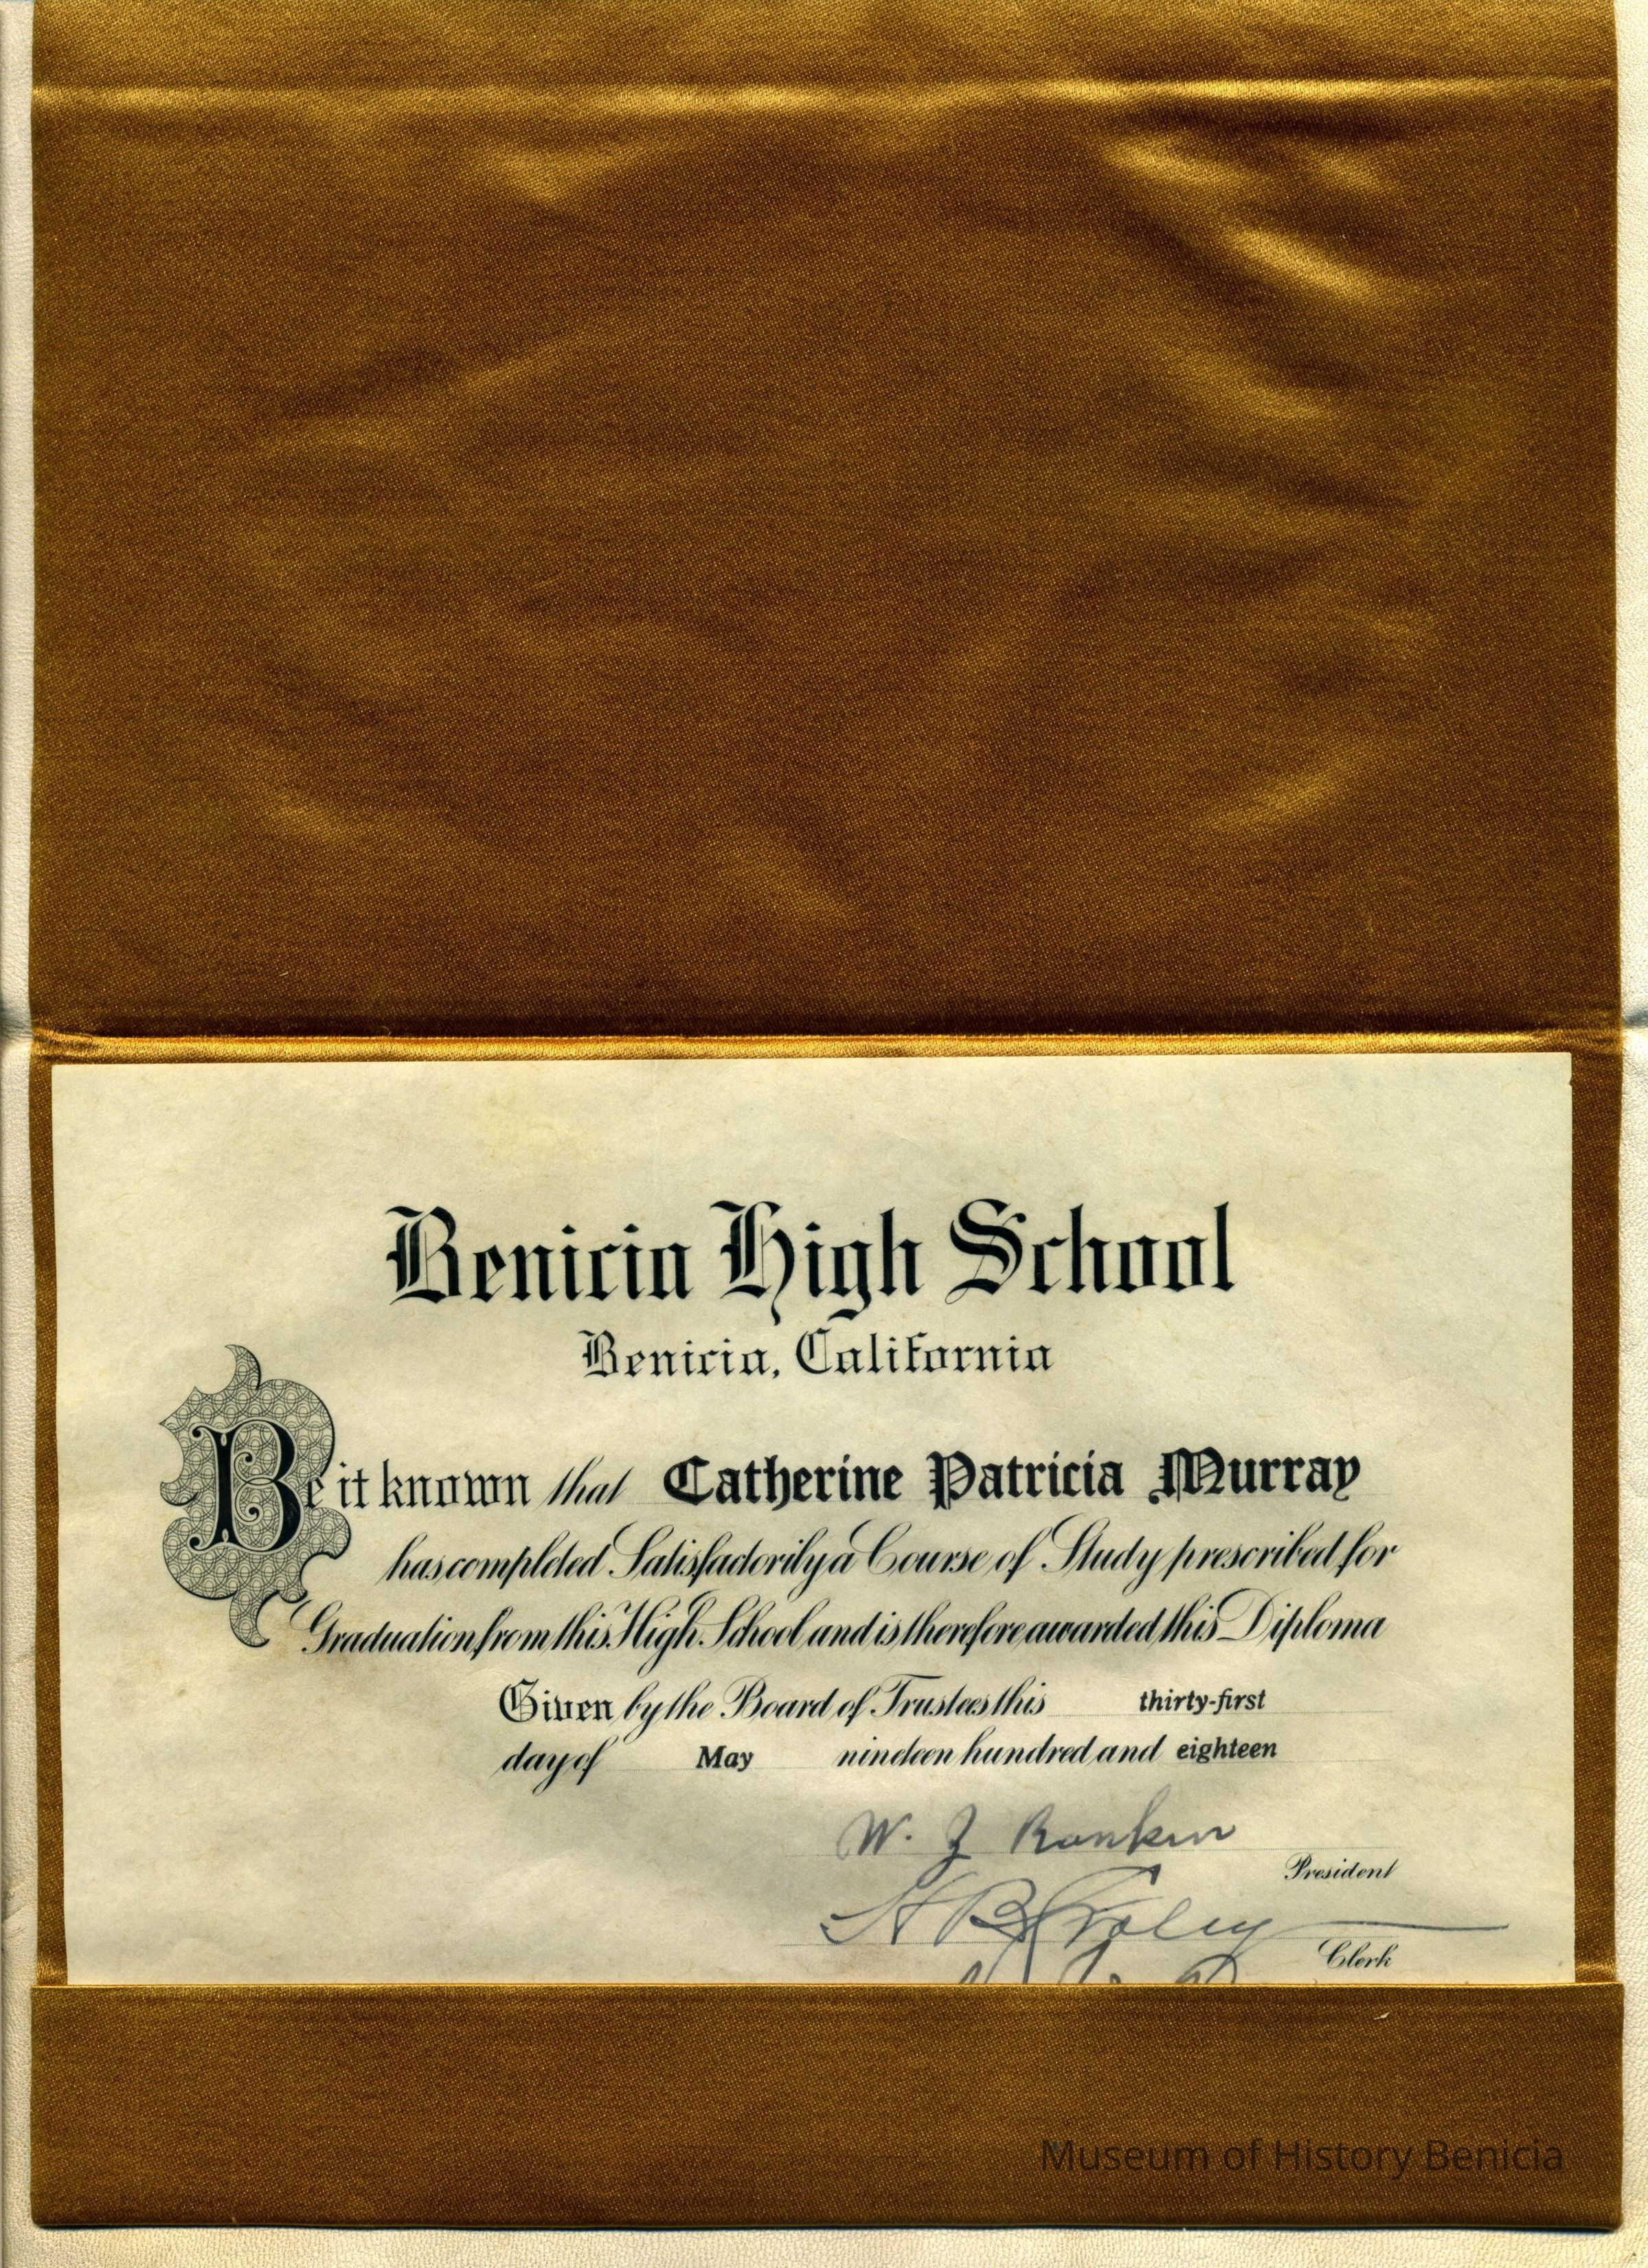 Benicia High School
Benicia, California
Be it known that Catherine Patricia Murray
has completed Satisfactorily a Course of Study prescribed for
Graduation from this High School and is therefore awarded this Diploma
Given by the Board of Trustees this thirty-first
day of May nineteen hundred and eighteen
W. J Rankin
President
Clerk
Museum of History Benicia